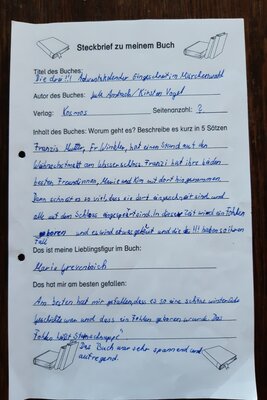 Steckbrief zu meinem Buch
Titel des Buches:
Die drei !!! Adventskalender Eingeschneit im Märchenwald
Autor des Buches: Jule Ambach/Kirsten Vogel
Verlag: Kosmos Seitenanzahl: ?
Inhalt des Buches: Worum geht es? Beschreibe es kurz in 5 Sätzen
Franzis Mutter, Fr Winkler, hat einen Stand auf den
Weihnachtsmarkt am Wasserschloss. Franzi hat ihre beiden
besten Freundinnen, Marie und Kim mit dort hingenommen.
Dann schneit es so viel, dass sie dort eingeschneit sind und
alle auf dem Schloss eingesperrt sind. In dieser Zeit wird ein Fohlen
geboren und es wird etwas geklaut und die drei !!! haben so ihren
Fall
Das ist meine Lieblingsfigur im Buch:
Marie Grevenbroich
Das hat mir am besten gefallen:
Am besten hat mir gefallen, dass es so eine schöne winterliche
Geschichte war und dass ein Fohlen geboren wurde. Das
Fohlen heißt
Das Buch war sehr spannend und
aufregend.